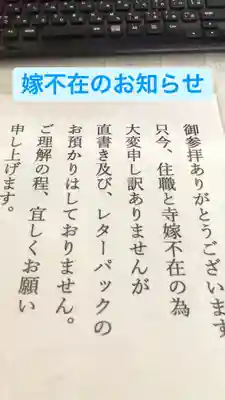 嫁不在のお知らせ
御参拝ありがとうございます
只今、住職と寺嫁不在の為
大変申し訳ありませんが
直書き及び、レターパックの
お預かりはしておりません。
ご理解の程、宜しくお願い
申し上げます。